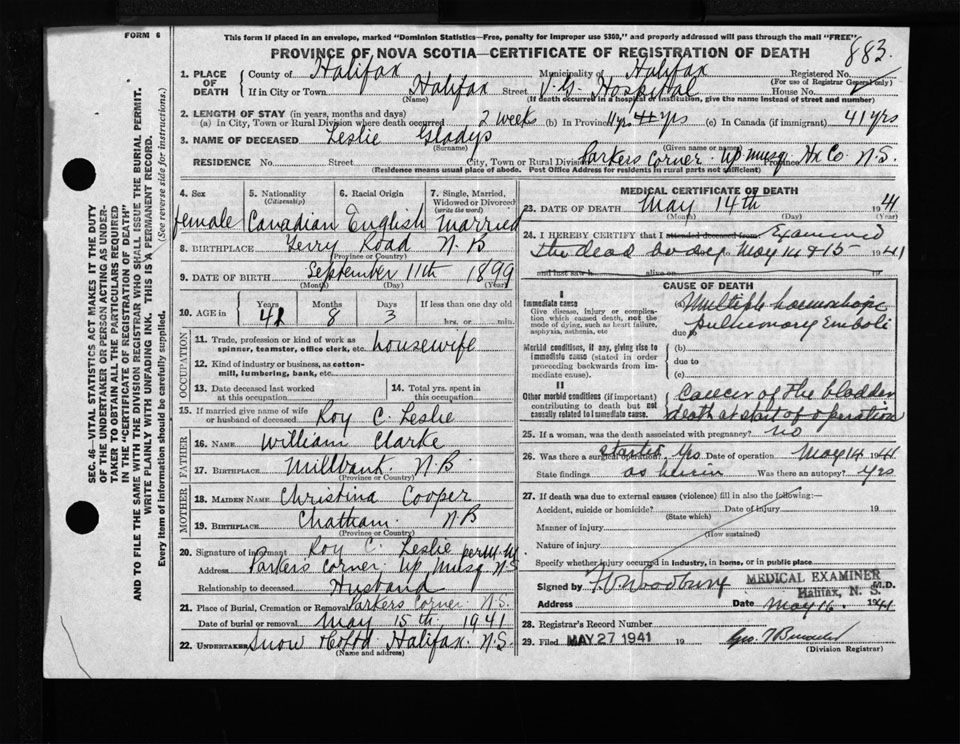 FORM 6
This form if placed in an envelope, marked "Dominion Statistics—Free, penalty for improper use $300", and properly addressed will pass through the mail "FREE"
PROVINCE OF NOVA SCOTIA—CERTIFICATE OF REGISTRATION OF DEATH
883.
1. PLACE OF DEATH
County of Halifax Municipality of Halifax Registered No.
(For use of Registrar General only)
If in City or Town Halifax Street V. G. Hospital House No.
(Name) (If death occurred in a hospital or institution, give the name instead of street and number)
2. LENGTH OF STAY (in years, months and days)
(a) In City, Town or Rural Division where death occurred 2 weeks (b) In Province 11 yrs 41 yrs (c) In Canada (if immigrant) 41 yrs
3. NAME OF DECEASED Leslie Gladys
(Surname) (Given name or names)
RESIDENCE No. Street City, Town or Rural Division Parkers Corner. Up Musq. Province Hx Co. N.S.
(Residence means usual place of abode. Post Office Address for residents in rural parts not sufficient)
SEC. 46—VITAL STATISTICS ACT MAKES IT THE DUTY
OF THE UNDERTAKER OR PERSON ACTING AS UNDERTAKER TO OBTAIN ALL THE PARTICULARS REQUIRED
IN THE "CERTIFICATE OF REGISTRATION OF DEATH"
AND TO FILE THE SAME WITH THE DIVISION REGISTRAR WHO SHALL ISSUE THE BURIAL PERMIT.
WRITE PLAINLY WITH UNFADING INK. THIS IS A PERMANENT RECORD.
Every item of information should be carefully supplied. (See reverse side for instructions.)
4. Sex female
5. Nationality (Citizenship) Canadian
6. Racial Origin English
7. Single, Married, Widowed or Divorced (write the word) Married
8. BIRTHPLACE Ferry Road N.B
(Province or Country)
9. DATE OF BIRTH September 11th 1899
(Month) (Day) (Year)
10. AGE in Years 41 Months 8 Days 3 If less than one day old
hrs. or min.
OCCUPATION
11. Trade, profession or kind of work as
spinner, teamster, office clerk, etc. housewife
12. Kind of industry or business, as cotton-
mill, lumbering, bank, etc.
13. Date deceased last worked
at this occupation
14. Total yrs. spent in
this occupation
15. If married give name of wife
or husband of deceased Roy C. Leslie
FATHER
16. NAME William Clarke
17. BIRTHPLACE Millbank. N.B.
(Province or Country)
MOTHER
18. MAIDEN NAME Christina Cooper
19. BIRTHPLACE Chatham. N.B
(Province or Country)
20. Signature of informant Roy C. Leslie
Address Parkers Corner. Up Musq. N.S
Relationship to deceased Husband
21. Place of Burial, Cremation or Removal Parkers Corner N.S.
Date of burial or removal May 15th 1941
22. UNDERTAKER Snow & Co Ltd. Halifax. N.S.
(Name and address)
MEDICAL CERTIFICATE OF DEATH
23. DATE OF DEATH May 14th 1941
(Month) (Day) (Year)
24. I HEREBY CERTIFY that I attended deceased from Examined
the dead body May 14 & 15 1941
and last saw h alive on 19
CAUSE OF DEATH
I
Immediate cause
Give disease, injury or complication which caused death, not the mode of dying, such as heart failure, asphyxia, asthenia, etc
(a) Multiple
due to Pulmonary Emboli
Morbid conditions, if any, giving rise to immediate cause (stated in order proceeding backwards from immediate cause).
(b)
due to
(c)
II
Other morbid conditions (if important) contributing to death but not causally related to immediate cause.
Cancer of the bladder
death at start of operation
25. If a woman, was the death associated with pregnancy? no
26. Was there a surgical operation? started yes Date of operation May 14 1941
State findings as herein Was there an autopsy? yes
27. If death was due to external causes (violence) fill in also the following:—
Accident, suicide or homicide? Date of injury 19
(State which)
Manner of injury
(How sustained)
Nature of injury
Specify whether injury occurred in industry, in home, or in public place
Signed by Woodbury M.D.
MEDICAL EXAMINER
Halifax, N. S.
Address Date May 16. 1941
28. Registrar's Record Number
29. Filed MAY 27 1941 19
(Division Registrar)